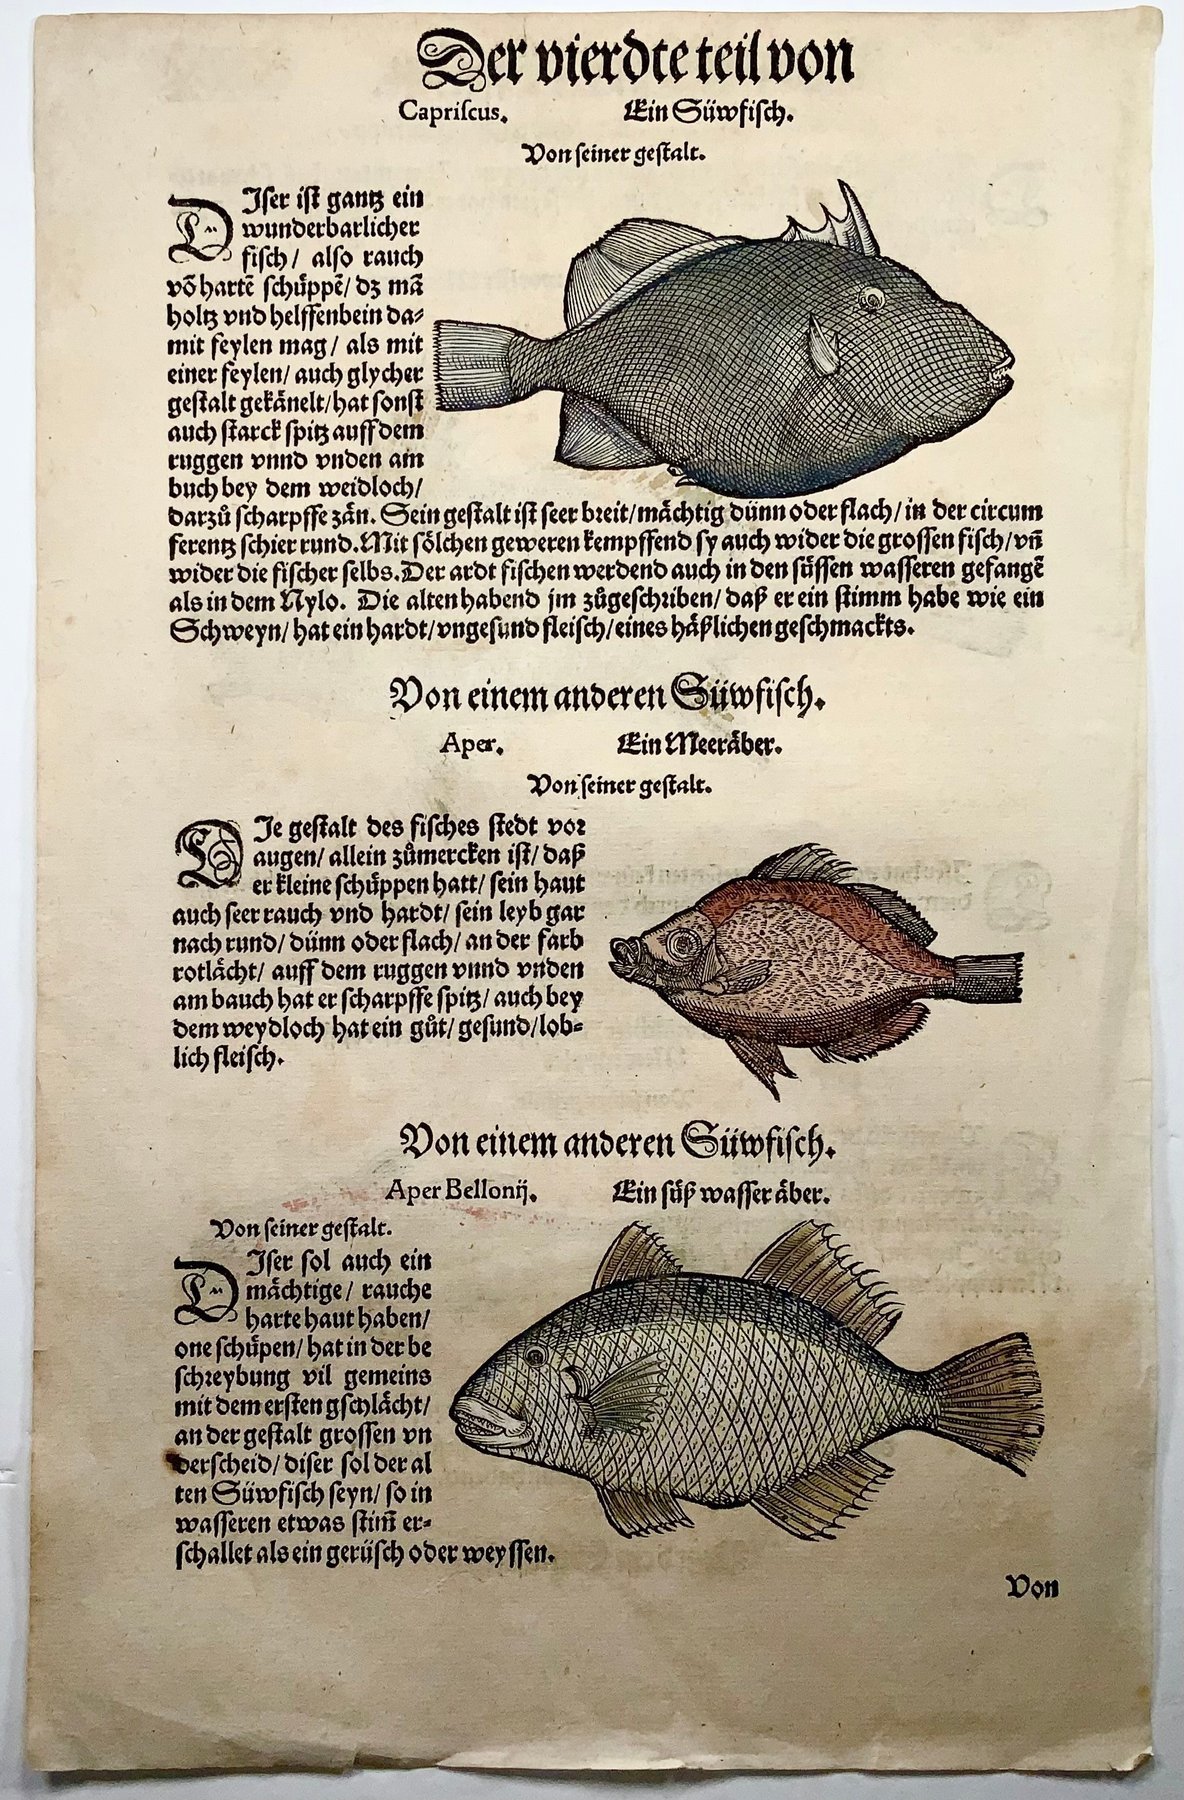 Der vierdte teil von
Capriſcus. Ein Süwfiſch.
Von ſeiner geſtalt.
DIſer iſt gantz ein
wunderbarlicher
fiſch/ alſo rauch
võ hartẽ ſchüppẽ/ dz mã
holtz vnd helffenbein da⸗
mit feylen mag/ als mit
einer feylen/ auch glycher
geſtalt gekänelt/ hat ſonſt
auch ſtarck ſpitz auff dem
ruggen vnnd vnden am
buch bey dem weidloch/
darzů ſcharpffe zän. Sein geſtalt iſt ſeer breit/ mächtig dünn oder flach/ in der circum
ferentz ſchier rund. Mit ſölchen geweren kempffend ſy auch wider die groſſen fiſch/ vñ
wider die fiſcher ſelbs. Der ardt fiſchen werdend auch in den ſüſſen waſſeren gefangẽ
als in dem Nylo. Die alten habend jm zůgeſchriben/ daß er ein ſtimm habe wie ein
Schweyn/ hat ein hardt/ vngeſund fleiſch/ eines häßlichen geſchmackts.
Von einem anderen Süwfiſch.
Aper. Ein Meeräber.
Von ſeiner geſtalt.
DIe geſtalt des fiſches ſtedt vor
augen/ allein zůmercken iſt/ daß
er kleine ſchüppen hatt/ ſein haut
auch ſeer rauch vnd hardt/ ſein leyb gar
nach rund/ dünn oder flach/ an der farb
rotlächt/ auff dem ruggen vnnd vnden
am bauch hat er ſcharpffe ſpitz/ auch bey
dem weydloch hat ein gůt/ geſund/ lob⸗
lich fleiſch.
Von einem anderen Süwfiſch.
Aper Bellonij. Ein ſüß waſſer äber.
Von ſeiner geſtalt.
DIſer ſol auch ein
mächtige/ rauche
harte haut haben/
one ſchüpen/ hat in der be
ſchreybung vil gemeins
mit dem erſten gſchlächt/
an der geſtalt groſſen vn
derſcheid/ diſer ſol der al
ten Süwfiſch ſeyn/ ſo in
waſſeren etwas ſtim̃ er⸗
ſchallet als ein gerüſch oder weyſſen.
Von